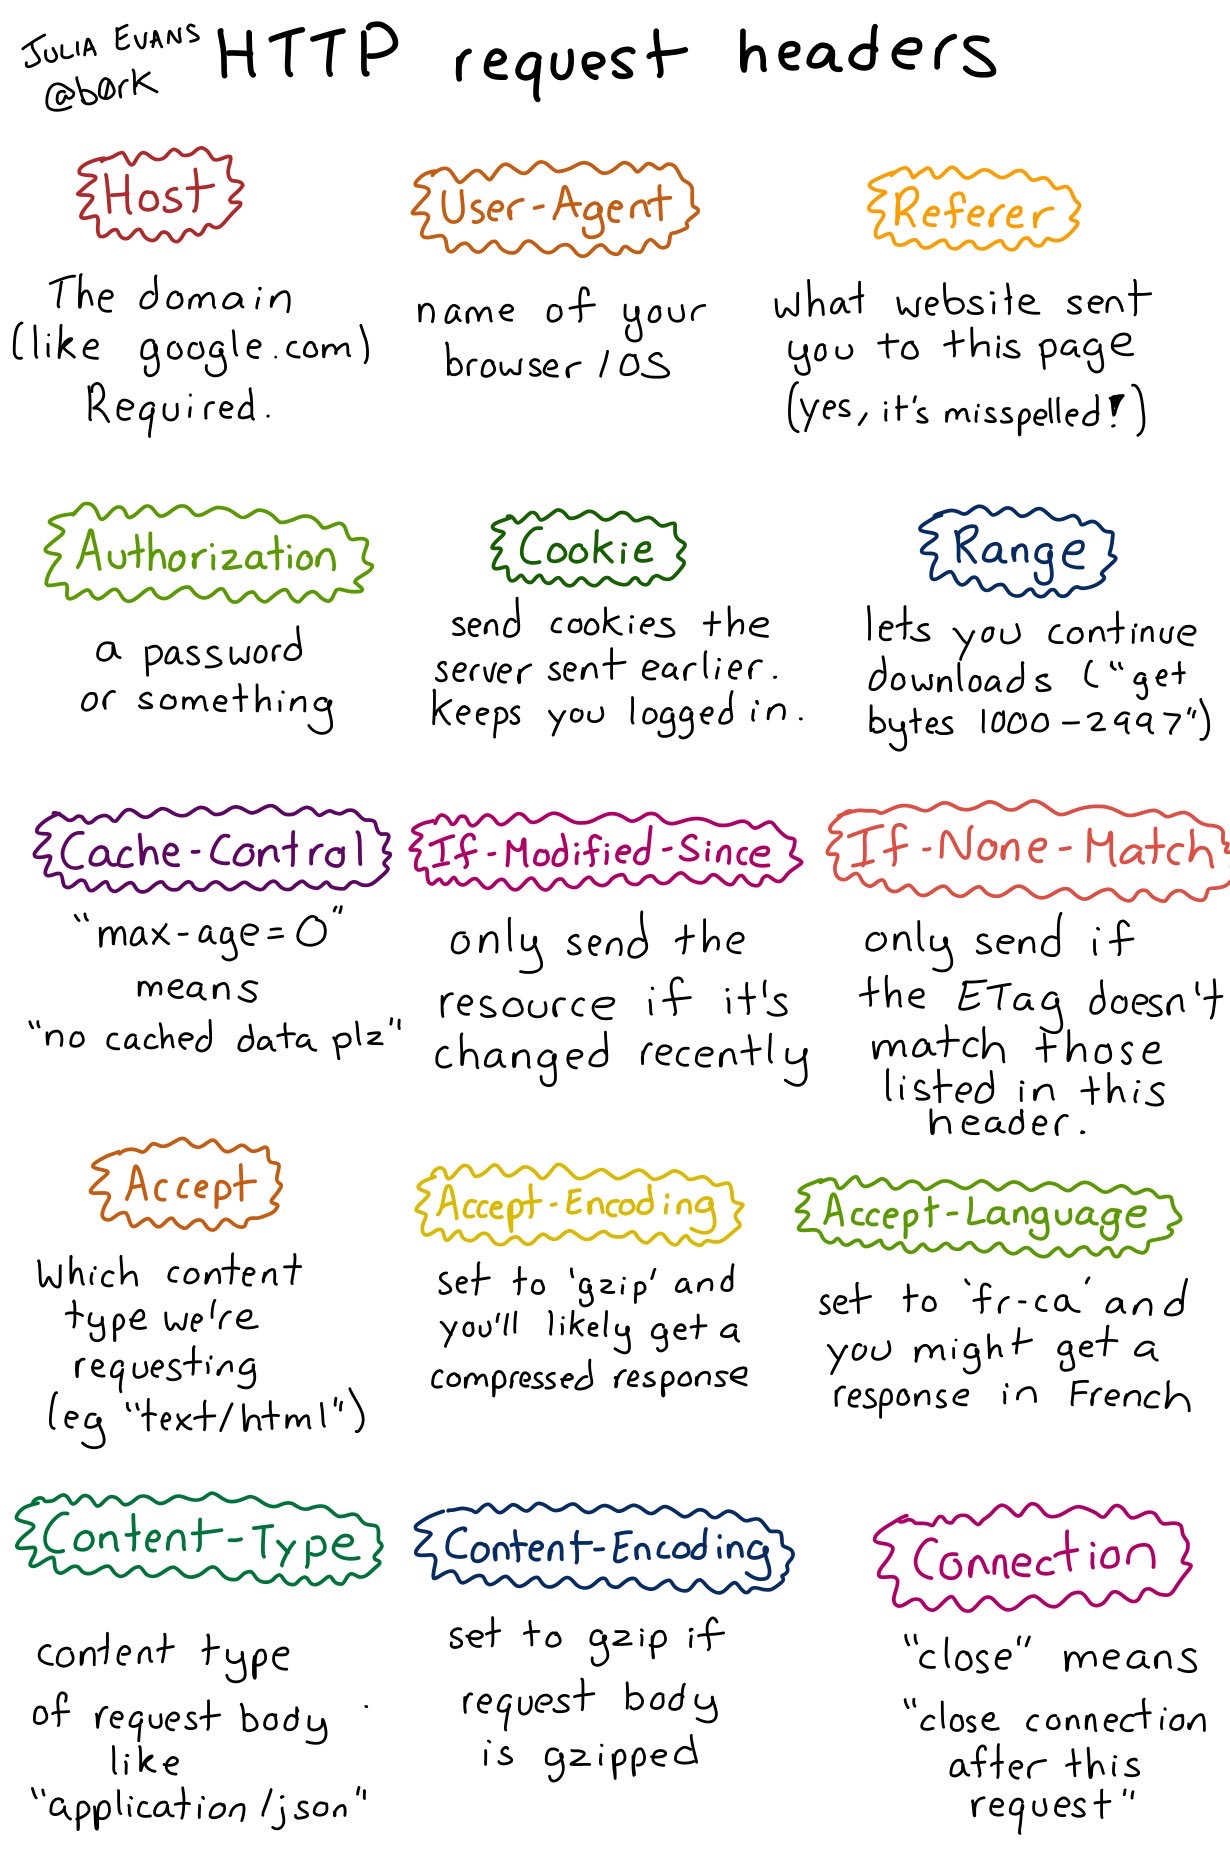 JULIA EVANS
@b0rk
HTTP request headers
Host
The domain
(like google.com)
Required.
User-Agent
name of your
browser/OS
Referer
what website sent
you to this page
(yes, it's misspelled!)
Authorization
a password
or something
Cookie
send cookies the
server sent earlier.
keeps you logged in.
Range
lets you continue
downloads ("get
bytes 1000-2997")
Cache-Control
"max-age=0"
means
"no cached data plz"
If-Modified-Since
only send the
resource if it's
changed recently
If-None-Match
only send if
the ETag doesn't
match those
listed in this
header.
Accept
Which content
type we're
requesting
(eg "text/html")
Accept-Encoding
set to 'gzip' and
you'll likely get a
compressed response
Accept-Language
set to 'fr-ca' and
you might get a
response in French
Content-Type
content type
of request body
like
"application/json"
Content-Encoding
set to gzip if
request body
is gzipped
Connection
"close" means
"close connection
after this
request"